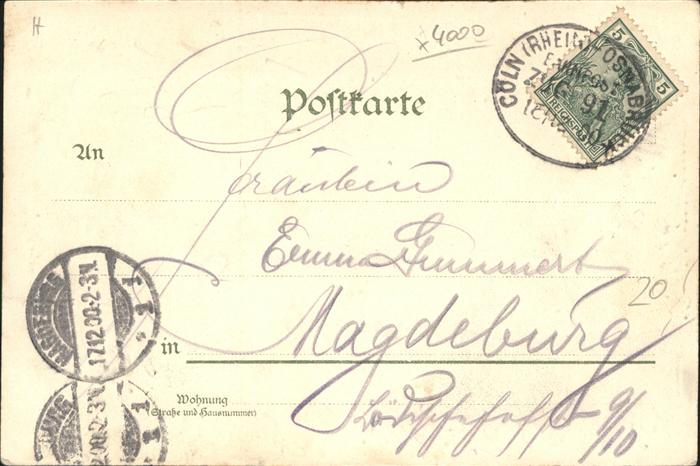 H
x 4000
CÖLN (RHEIN) OSNABRÜCK
BAHNPOST
ZUG 91
5
5
REICHSPOST
Postkarte
An
Fräulein
Emma Grummert
20
in Magdeburg
MAGDEBURG
17.12.00.2-3N.
* 1 *
Wohnung
(Straße und Hausnummer)
9/10
1